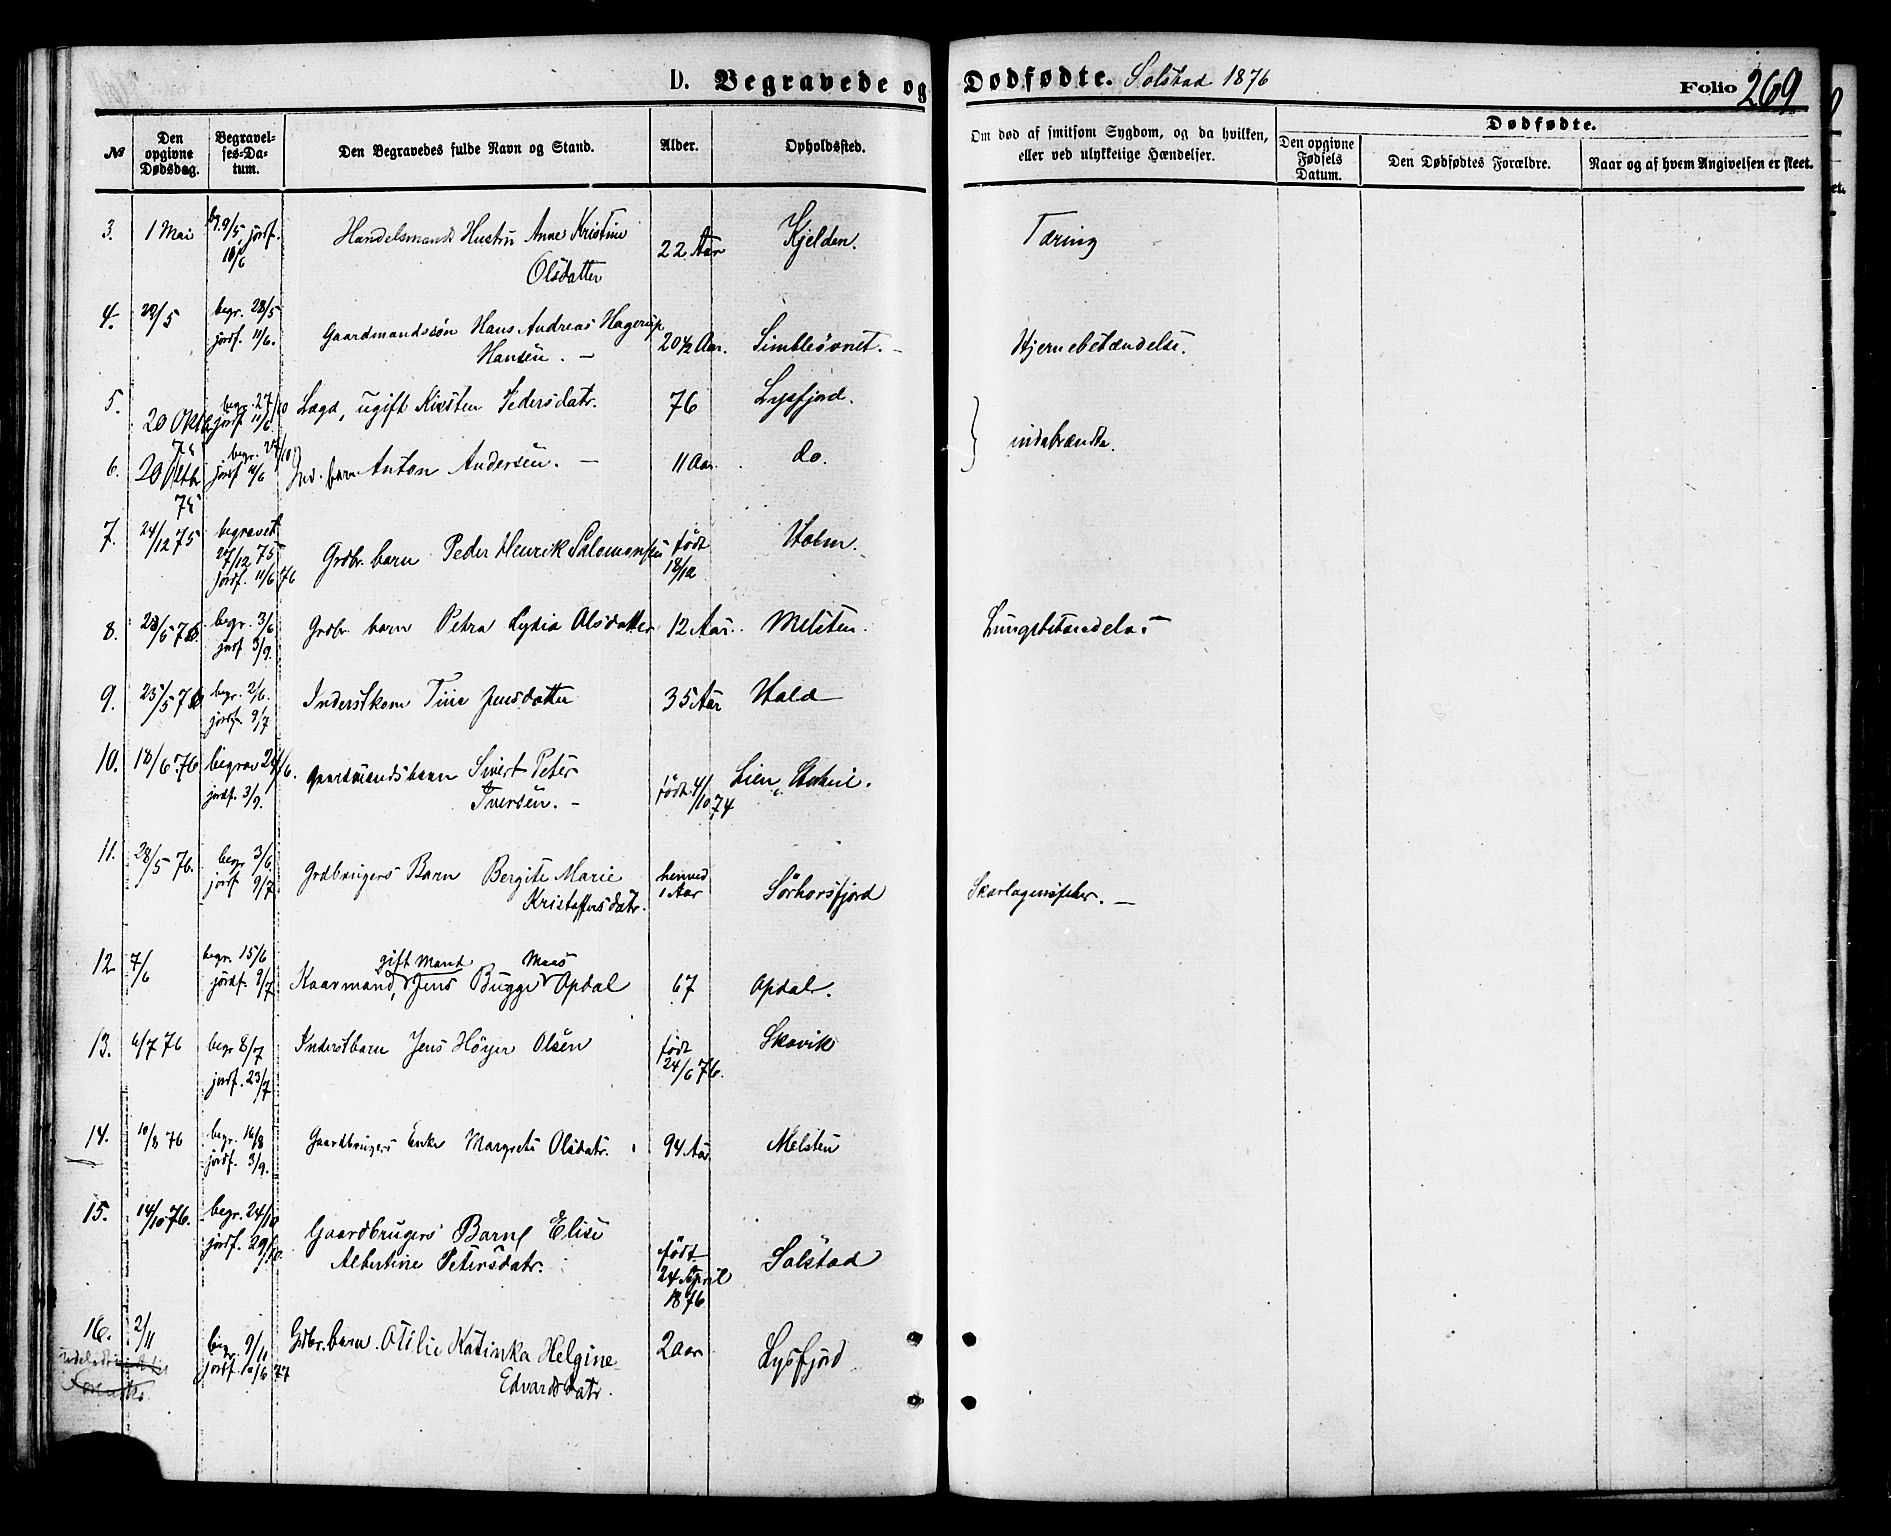 D. Begravede og Dødfødte. Solstad 1876 Folio 269
№ Den opgivne Dødsdag. Begravelses-Datum. Den Begravedes fulde Navn og Stand. Alder. Opholdssted. Om død af smitsom Sygdom, og da hvilken, eller ved ulykkelige Hændelser. Dødfødte.
Den opgivne Fødsels Datum. Den Dødfødtes Forældre. Naar og af hvem Angivelsen er skeet.
3. 1 Mai bg. 9/5, jordf. Handelsmands Hustru Anne Kristine 22 Aar Kjelden. Tæring
Olsdatter
4. 22/5 begr. 28/5 jordf. 11/6. Gaardmandssön Hans Andreas Hagerup 20 1/2 Aar. Simblesövnet. Hjernebetændelse.
Hansen. —
5. 20 Oktb 75 begr. 27/10 jordf. 11/6 Lægd, ugift Kirsten Pedersdatr. 76 Lysfjord. } indebrændte.
6. 20 Oktb 75 begr. 27/10 jordf 11/6 Ind. barn Anton Andersen. — 11 Aar. do.
7. 24/12 75 begravet 27/12 75 jordf. 11/6 76 Grdbr. barn Peder Henrik Salomonsen født 18/12 Holm.
8. 28/5 76. begr. 3/6 jordf 3/9. Grdbr. barn Petra Lydia Olsdatter 12 Aar. Melsten. Lungebetændelse
9. 25/5 76 begr. 2/6. jordf. 9/7 Inderstkone Tine Jensdatter 35 Aar Hald
10. 18/6 76 begrav 24/6. jordf. 3/9. Gaardmandsbarn Sivert Peter født 4/10 74 Lien,
Iversen. —
11. 28/5 76. begr 3/6. jordf 9/7. Grdbrugers Barn Bergite Marie henved 1 Aar Sörhorsfjord Skarlagensfeber. —
Kristoffersdatr.
12 7/6 begr. 15/6 jordf. 9/7 gift Mand Maas
Kaarmand, Jens Bugge Opdal 67 Opdal.
13. 6/7 76 begr 8/7 jordf. 23/7 Inderstbarn Jens Höyer Olsen født 24/6 76. Skavik
14. 10/8 76 begr. 16/8 jordf. 3/9. Gaardbrugers Enke Margrete Olsdatr. 94 Aar Melsten
15. 14/10 76. begr. 24/10 jordf. 29/10. Gaardbrugers Barn Elise født 24 April 1876 Solstad
Albertine Petersdatr.
16. 2/11 begr. 9/11 jordf. 10/6 77 Grdbr. barn. Otilie Katinka Helgine 2 Aar Lysfjord
Edvardsdatr.